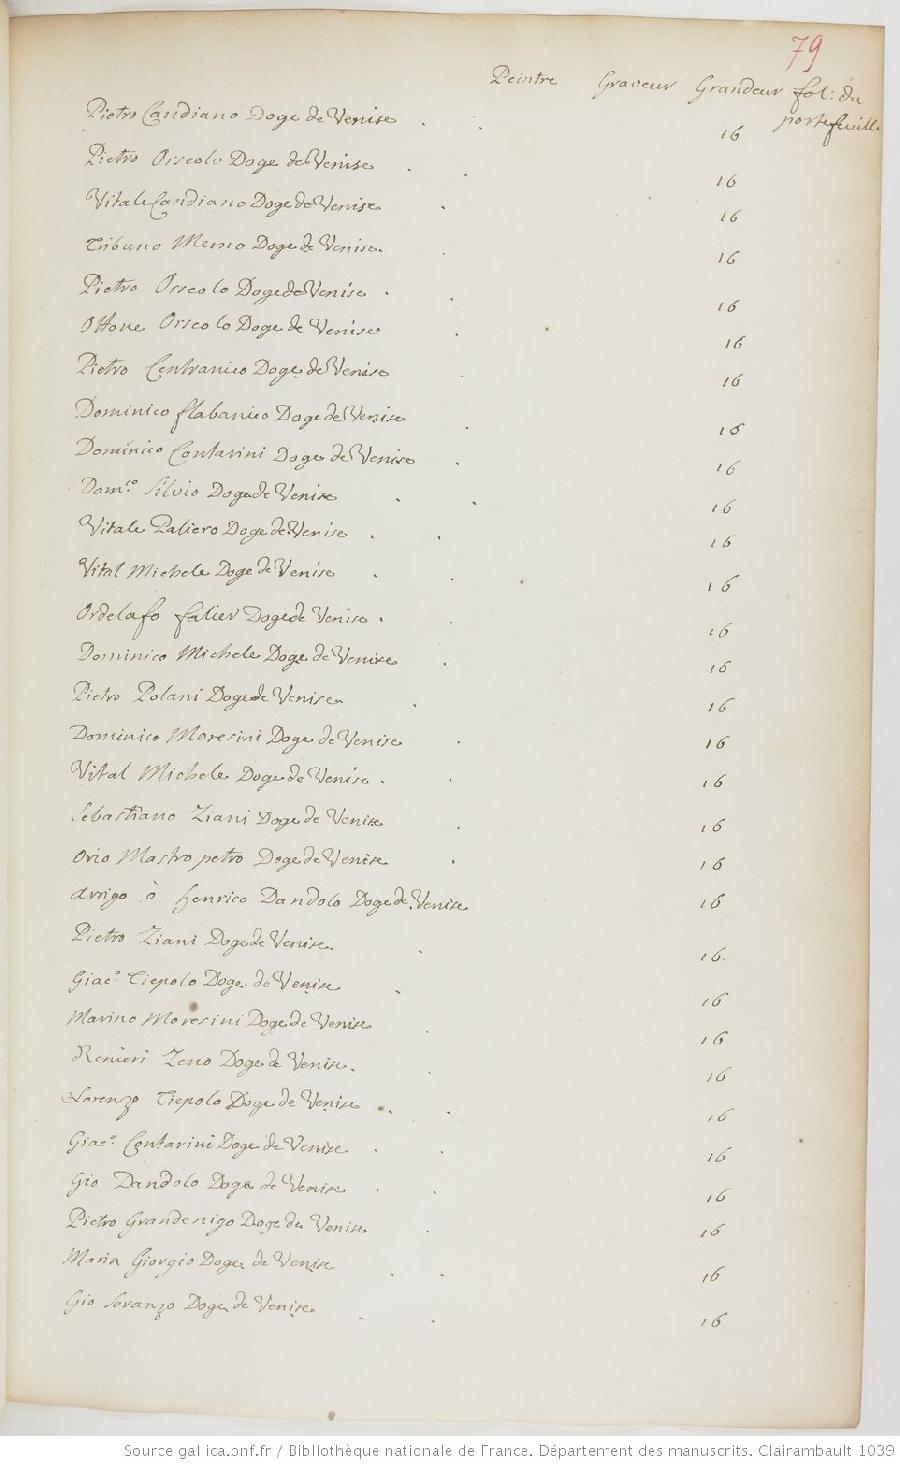 79
Peintre Graveur Grandeur fol: du
portefeuille
Pietro Candiano Doge de Venise . . 16
Pietro Orseolo Doge de Venise . . 16
Vitale Candiano Doge de Venise . 16
Tribuno Memo Doge de Venise . 16
Pietro Orseolo Doge de Venise . . 16
Ottone Orseolo Doge de Venise . 16
Pietro Centranico Doge de Venise 16
Dominico flabanico Doge de Venise . 16
Dominico Contarini Doge de Venise . 16
Dom.co Silvio Doge de Venise . . 16
Vitale Faliero Doge de Venise . . 16
Vital Michele Doge de Venise . . 16
Ordelafo falier Doge de Venise . . 16
Dominico Michele Doge de Venise . 16
Pietro Polani Doge de Venise . 16
Dominico Moresini Doge de Venise . 16
Vital Michele Doge de Venise . . 16
Sebastiano Ziani Doge de Venise . 16
Orio Mastropetro Doge de Venise . 16
Arrigo ò henrico Dandolo Doge de Venise 16
Pietro Ziani Doge de Venise . . 16.
Giac.o Tiepolo Doge de Venise . 16
Marino Moresini Doge de Venise . 16
Renieri Zeno Doge de Venise . . 16
Lorenzo Tiepolo Doge de Venise . . 16
Giac.o Contarini Doge de Venise . . 16
Gio Dandolo Doge de Venise . . 16
Pietro Grandenigo Doge de Venise . 16
Marin Giorgio Doge de Venise . . 16
Gio Soranzo Doge de Venise . . 16
Source gallica.bnf.fr / Bibliothèque nationale de France. Département des manuscrits. Clairambault 1039